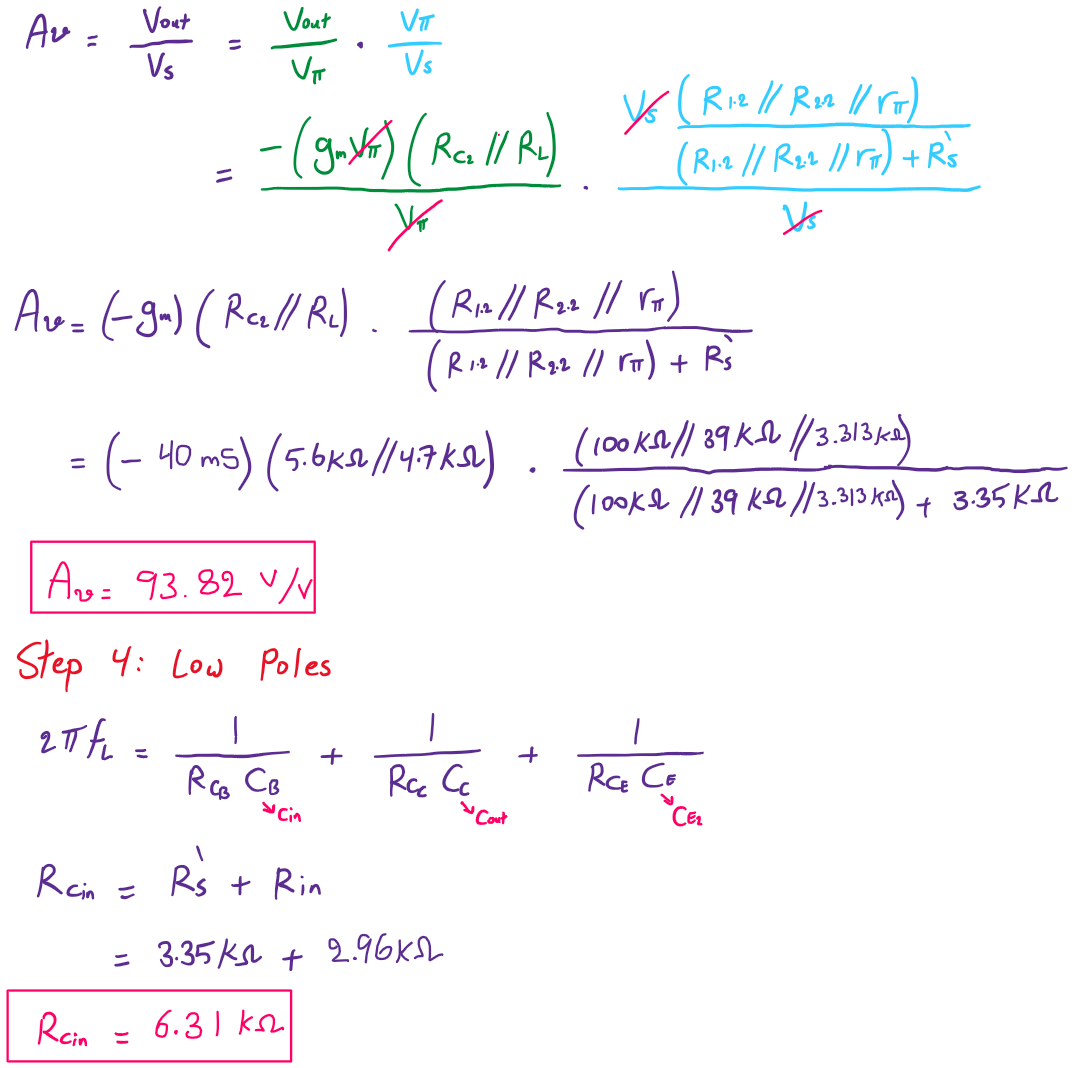 Av = Vout/Vs = Vout/Vπ · Vπ/Vs
= -(gm Vπ)(RC2 // RL)/Vπ · Vs (R1.2 // R2.2 // rπ)/(R1.2 // R2.2 // rπ) + R`s/Vs
Av = (-gm) (RC2 // RL) · (R1.2 // R2.2 // rπ)/(R1.2 // R2.2 // rπ) + R`s
= (- 40 mS) (5.6kΩ // 4.7kΩ) · (100kΩ // 39kΩ // 3.313kΩ)/(100kΩ // 39kΩ // 3.313kΩ) + 3.35kΩ
Av = 93.82 V/V
Step 4: Low Poles
2πfL = 1/RCB CB + 1/RCC CC + 1/RCE CE
↘Cin ↘Cout ↘CE2
Rcin = R`s + Rin
= 3.35kΩ + 2.96kΩ
Rcin = 6.31 kΩ